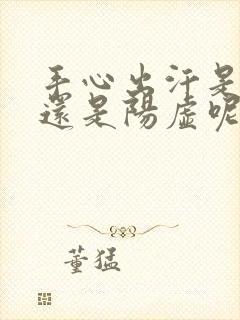 手心出汗是
還是陽虛呢
董猛